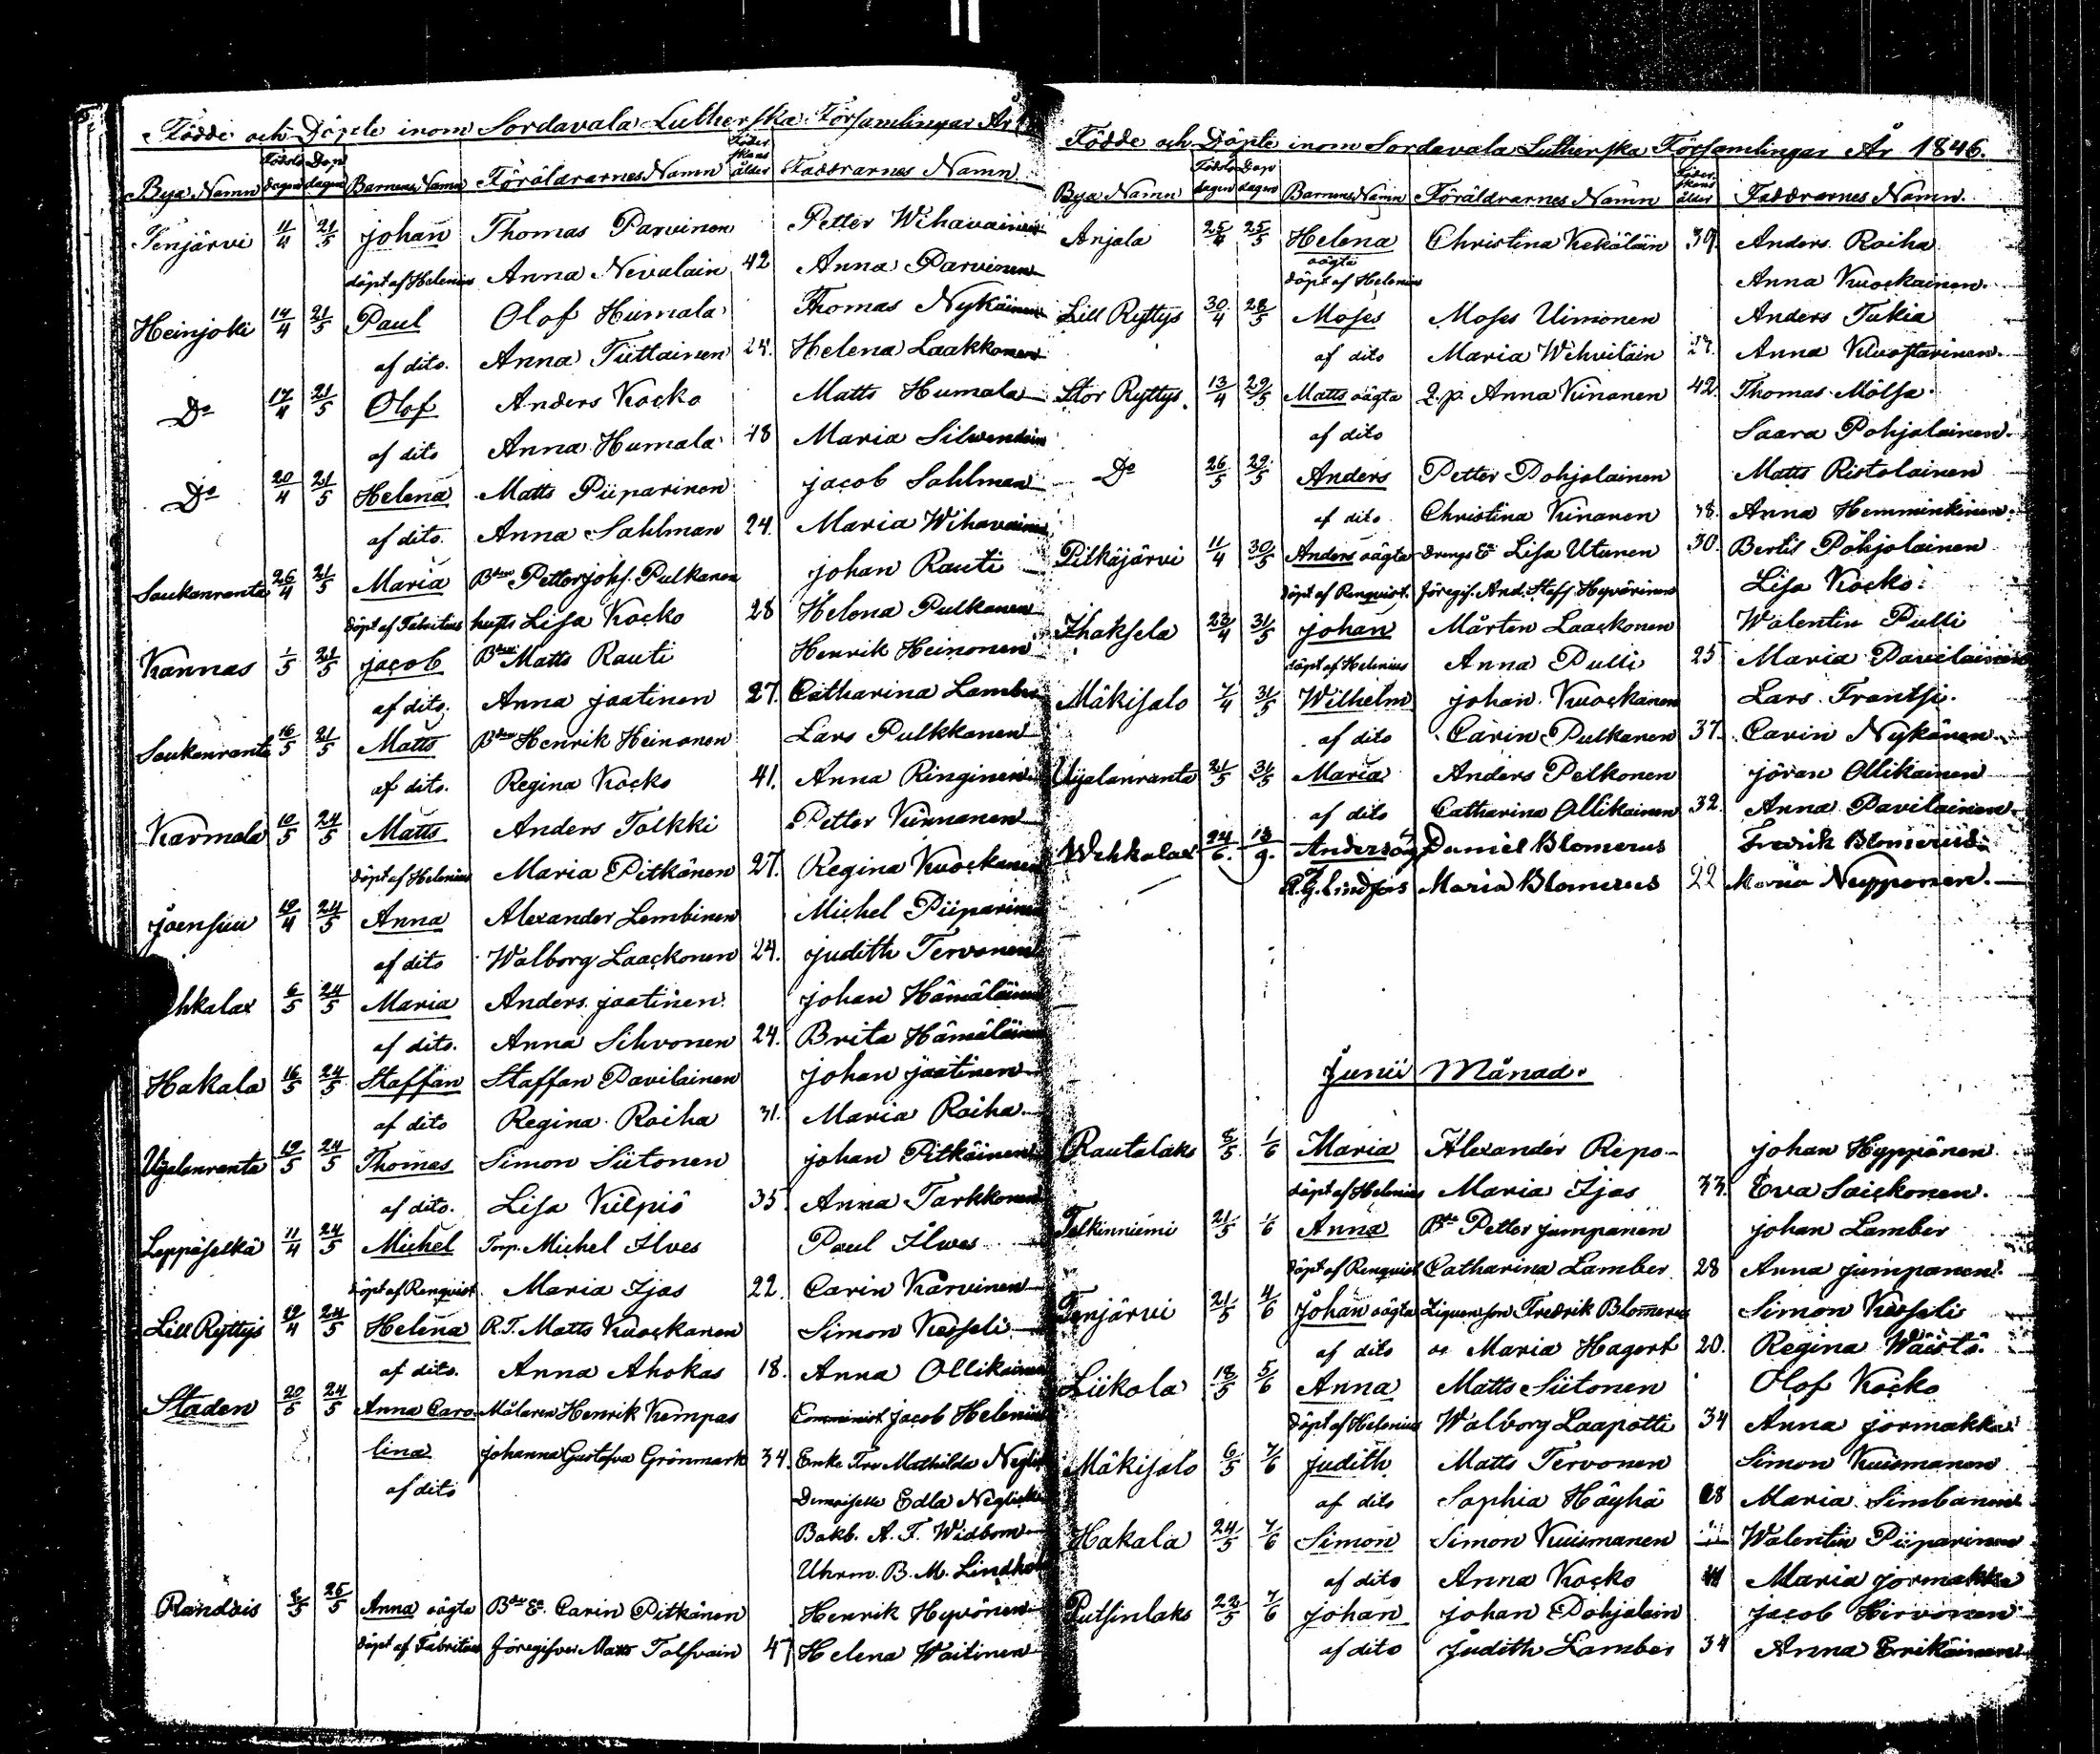 Födde och Döpte inom Sordavala Lutherska Församlingar År
Bya Namn Födelse dagen Dop dagen Barnens Namn Föräldrarnes Namn Föderskans ålder Faddrarnes Namn
Tenjärvi 11/4 21/5 Johan Thomas Parvinen Petter Wihavainen
döpt af Helenius Anna Nevalain 42 Anna Parvinen
Heinjoki 14/4 21/5 Paul Olof Humala Thomas Nykäinen
af dito. Anna Tiittainen 24. Helena Laakkonen
Do 17/4 21/5 Olof Anders Kocko Matts Humala
af dito Anna Humala 48 Maria Silvendoin
Do 20/4 21/5 Helena Matts Piiparinen Jacob Sahlman
af dito. Anna Sahlman 24. Maria Wihavainen
Soukanranta 26/4 21/5 Maria Bden Petter Johs. Pulkanen Johan Rauti
döpt af Fabritius hust Lisa Kocko 28 Helena Pulkanen
Kannas 1/5 21/5 Jacob Bden Matts Rauti Henrik Heinonen
af dito. Anna Jaatinen 27. Catharina Lamber
Soukanranta 16/5 21/5 Matts Bden Henrik Heinonen Lars Pulkkanen
af dito. Regina Kocko 41. Anna Ringinen
Karmala 10/5 24/5 Matts Anders Tolkki Petter Kinnanen
döpt af Helenius Maria Pitkänen 27. Regina Kuockanen
Joensuu 19/4 24/5 Anna Alexander Lembinen Michel Piiparinen
af dito Walborg Laackonen 24. Judith Tervonen
hkalax 6/5 24/5 Maria Anders Jaatinen Johan Hämäläinen
af dito. Anna Sihvonen 24. Brita Hämäläinen
Hakala 16/5 24/5 Staffan Staffan Pavilainen Johan Jaatinen
af dito Regina Roiha 31. Maria Roiha
Uijalanranta 19/5 24/5 Thomas Simon Siitonen Johan Pitkäinen
af dito. Lisa Kilpiö 35 Anna Tarkkonen
Leppäselkä 11/4 24/5 Michel Torp. Michel Ilves Paul Ilwes
döpt af Renqvist. Maria Ijas 22. Carin Karvinen
Lill Ryttys 19/4 24/5 Helena R.T. Matts Kuockanen Simon Kesseli
af dito. Anna Ahokas 18. Anna Ollikainen
Staden 20/5 24/5 Anna Caro- Målaren Henrik Kempas Comminist Jacob Helenius
lina Johanna Gustafva Grönmark 34. Enke Fru Mathilda
af dito Demoiselle Edla
Bokb. A. F. Widbom
Uhrm. B. M. Lindholm
Randois 25/5 Anna oägta Bdr Ea. Carin Pitkänen Henrik Hyvönen
döpt af Fabritius föregifver Matts Tolfvain 47 Helena Waitinen
Födde och Döpte inom Sordavala Lutherska Församlingar År 1846.
Bya Namn Födelse dagen Dop dagen Barnens Namn Föräldrarnes Namn Föderskans ålder Faddrarnes Namn.
Anjala 25/4 25/5 Helena Christina Kekäläin 39. Anders Roiha
oägta
döpt af Helenius Anna Kuockainen.
Lill Ryttys 30/4 28/5 Moses Moses Uimonen Anders Tukia
af dito Maria Wihviläin 27. Anna Kuostarinen.
Stor Ryttys 13/4 29/5 Matts oägta Q.p. Anna Kinanen 42. Thomas Mölsa
af dito Saara Pohjolainen.
Do 26/5 29/5 Anders Petter Pohjolainen Matts Ristolainen
af dito Christina Kinanen 38. Anna Hemminkinen.
Pitkäjärvi 11/4 30/5 Anders oägta Drengs Ea Lisa Utunen 30. Bertil Pohjolainen
döpt af Renqvist. föregif. And. Staff. Hyvärinen Lisa Kocko.
Ihaksela 23/4 31/5 Johan Mårten Laackonen Walentin Pulli
döpt af Helenius Anna Pulli 25 Maria Pavilainen
Mäkisalo 7/4 31/5 Wilhelm Johan Kuockanen Lars Frantsi.
af dito Carin Pulkanen 37. Carin Nykänen.
Uijalanranta 21/5 31/5 Maria Anders Pelkonen Jöran Ollikainen
af dito Catharina Ollikainen 32. Anna Pavilainen.
Wehkalax 24/6. 13/9. Anders Daniel Blomerus Fredrik Blomerus.
Lindfors Maria Blomerus 22 Maria Nupponen.
Junii Månad.
Rautalaks 8/5 1/6 Maria Alexander Repo Johan Hyppönen.
döpt af Helenius Maria Ijas 33. Eva Saickonen.
Tolkinniemi 21/5 1/6 Anna Bde Petter Jumpanen Johan Lamber
döpt af Renqvist Catharina Lamber 28 Anna Jumpanen.
Tenjärvi 21/5 4/6 Johan oägta Fredrik Blomerus Simon Kesseli
af dito o Maria Hagert 20. Regina Wäistö.
Liikola 18/5 5/6 Anna Matts Siitonen Olof Kocko
döpt af Helenius Walborg Laapotti 34 Anna Jormakka
Mäkisalo 6/5 7/6 Judith Matts Tervonen Simon Kuismanen
af dito Sophia Häyhä 28 Maria Simbanen
Hakala 24/5 7/6 Simon Simon Kuismanen Walentin Piiparinen
af dito Anna Kocko 41 Maria Jormakka
Putsinlaks 22/5 7/6 Johan Johan Pohjolain Jacob Hirvonen
af dito Judith Lamber 34 Anna Erikäinen